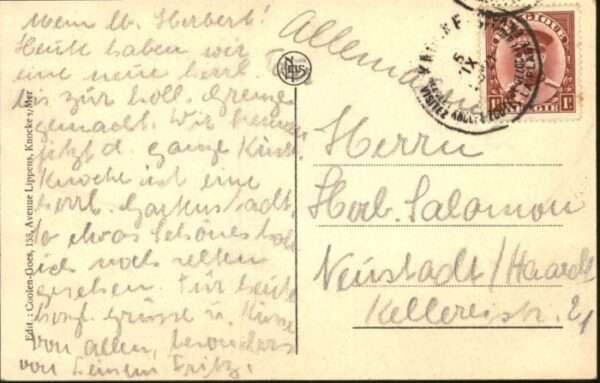 Mein lb. Herbert!
Heute haben wir
eine neue herrl.
bis zur holl. Grenze
gemacht. Wir kennen
jetzt d. ganze Küste.
Knocke ist eine
herrl. Gartenstadt,
so etwas Schönes hab
ich noch selten
gesehen. Für heute
herzl. Grüsse u. Küsse
von allen, besonders
von Deinem Fritz.
Edit : Coolen-Goes, 135, Avenue Lippens, Knocke s/Mer
Allemagne
Herrn
Herb. Salomon
Neustadt/Haardt
Kellereistr. 21